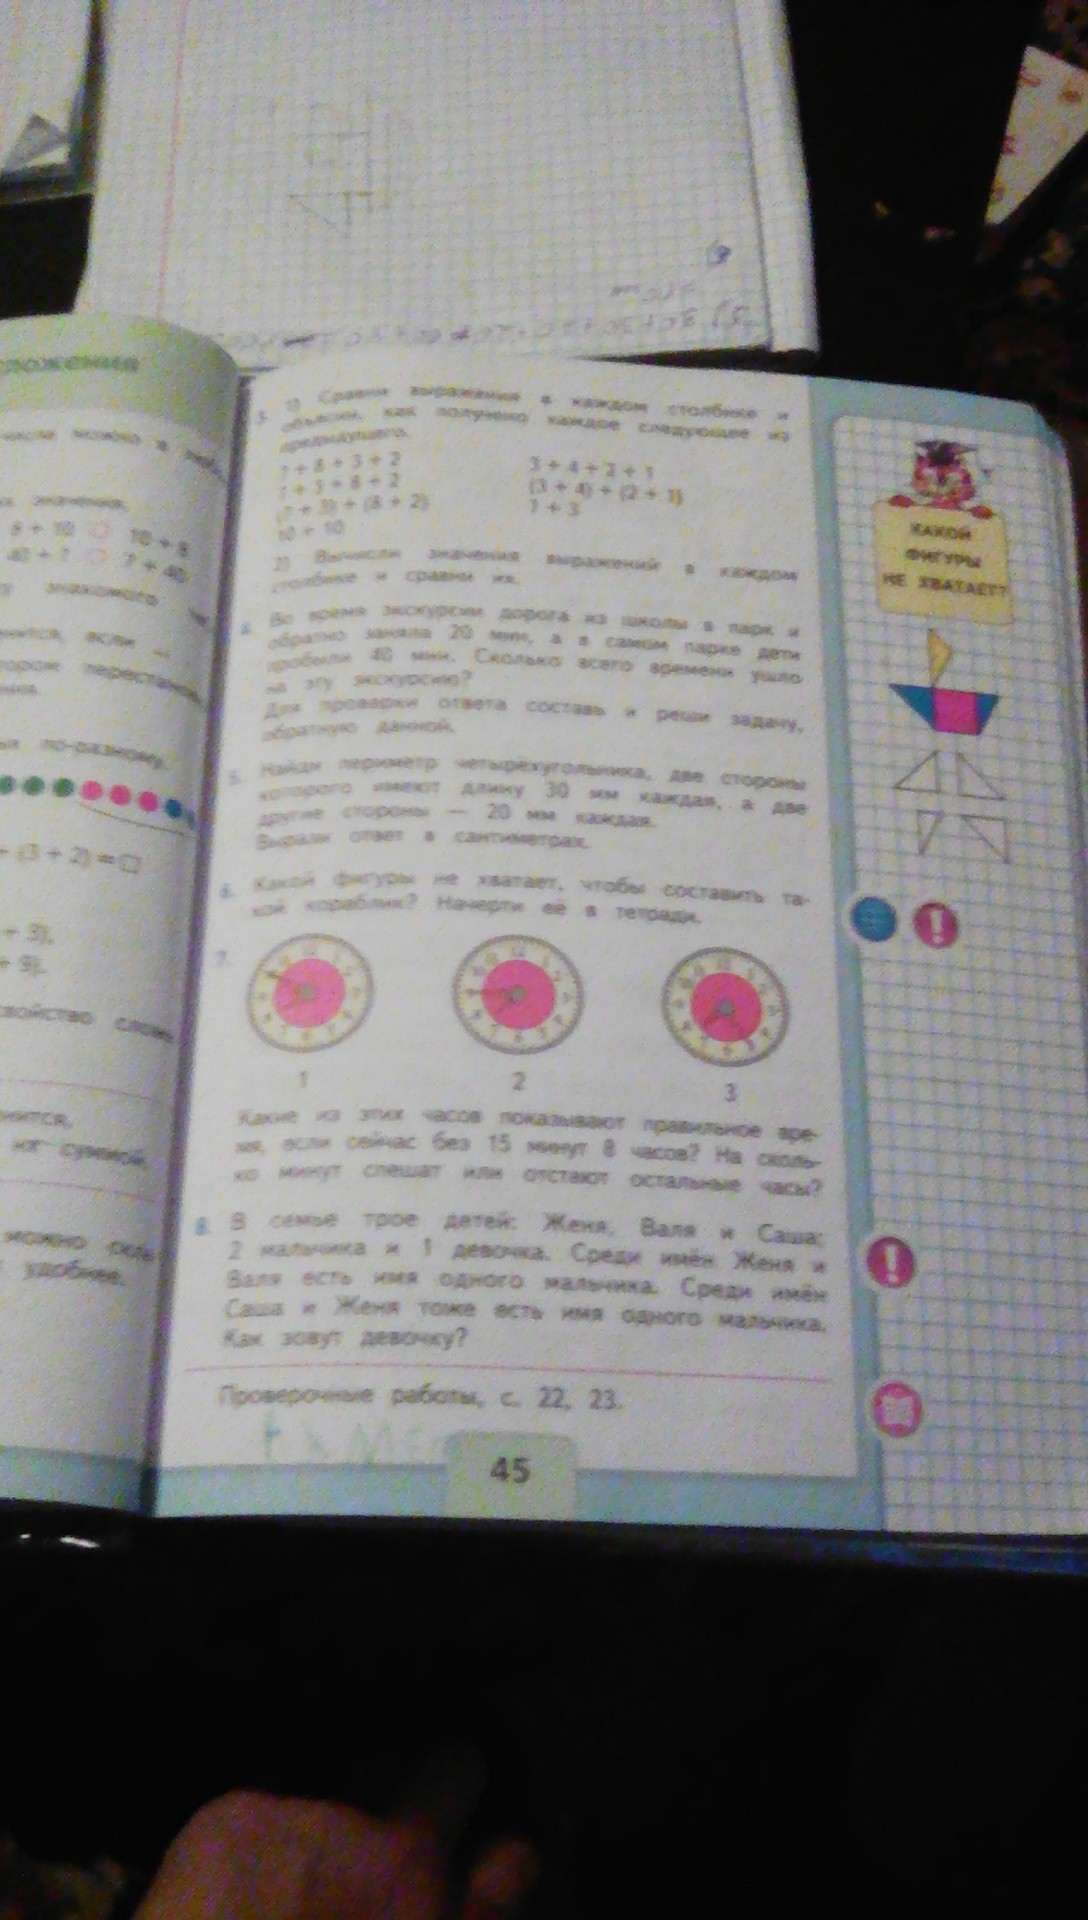 сложения
8 + 10 10 + 8
40 + 7 7 + 40
знакомого
если
по-разному.
+ (3 + 2) =
+ 3),
+ 9).
свойство слож
их суммой.
можно
удобнее.
1) Сравни выражения в каждом столбике и
объясни, как получено каждое следующее из
предыдущего.
7 + 8 + 3 + 2
7 + 3 + 8 + 2
(7 + 3) + (8 + 2)
10 + 10
3 + 4 + 2 + 1
(3 + 4) + (2 + 1)
7 + 3
2) Вычисли значения выражений в каждом
столбике и сравни их.
4. Во время экскурсии дорога из школы в парк и
обратно заняла 20 мин, а в самом парке дети
пробыли 40 мин. Сколько всего времени ушло
на эту экскурсию?
Для проверки ответа составь и реши задачу,
обратную данной.
5. Найди периметр четырёхугольника, две стороны
которого имеют длину 30 мм каждая, а две
другие стороны — 20 мм каждая.
Вырази ответ в сантиметрах.
6. Какой фигуры не хватает, чтобы составить та-
кой кораблик? Начерти её в тетради.
7.
1
2
3
Какие из этих часов показывают правильное вре-
мя, если сейчас без 15 минут 8 часов? На сколь-
ко минут спешат или отстают остальные часы?
8. В семье трое детей: Женя, Валя и Саша;
2 мальчика и 1 девочка. Среди имён Женя и
Валя есть имя одного мальчика. Среди имён
Саша и Женя тоже есть имя одного мальчика.
Как зовут девочку?
Проверочные работы, с. 22, 23.
45
КАКОЙ
ФИГУРЫ
НЕ ХВАТАЕТ?